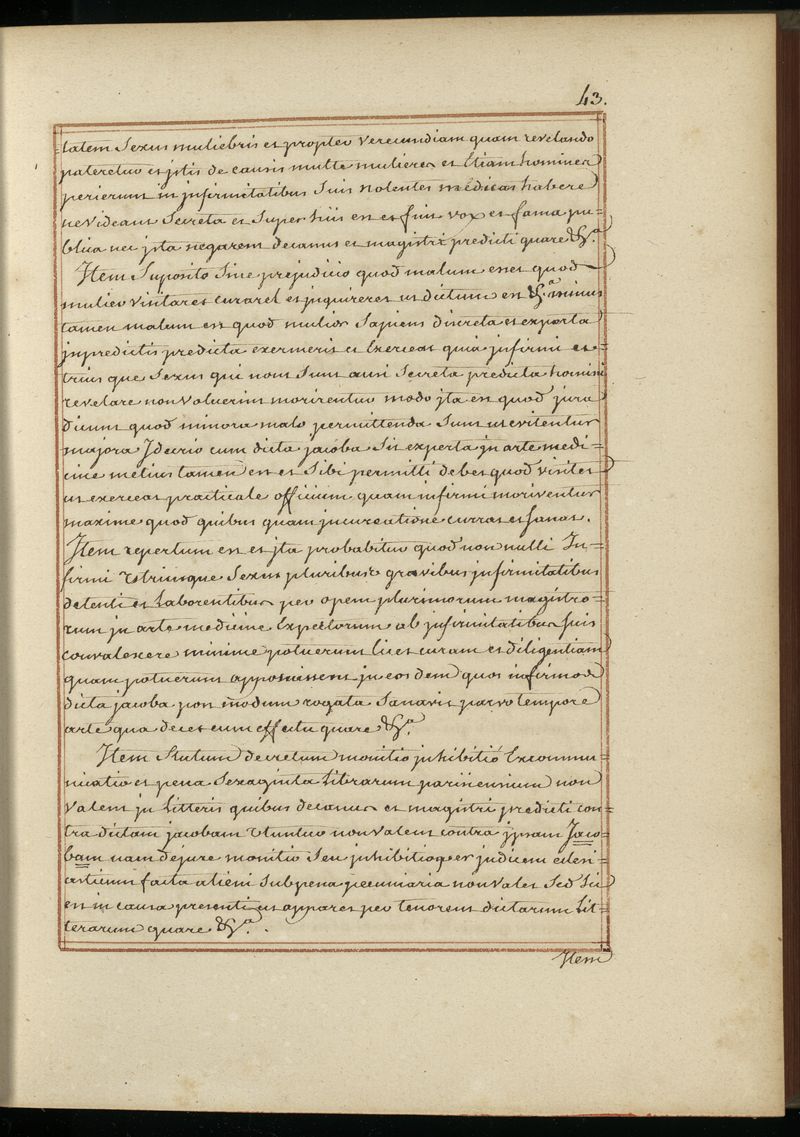 43.
tatem Sexus muliebris et propter verecundiam quam revelando
pateretur et istis de causis multe mulieres et Etiam homines
perierunt in infirmitatibus Suis nolentes medicos habere
ne videant Secreta et Super hiis est et fuit vox et fama pu=
blica nec ista negarent decanus et magistri predicti quare &.a
Item Suposito Sine prejudicio quod malum esset quod
mulier visitaret curaret et inquireret ut dictum est &.a minus
tamen malum est quod mulier Sapiens discreta et experta
in predictis predicta exerceat quia infirmi
trius que Sexus qui non Sunt ausi Secreta predicta homini
revelare non voluerint morirentur modo ita est quod jura
dicunt quod minora mala permittenda Sunt ut evitentur
majora Idcirco cum dicta jacoba Sit experta in arte medi=
cine melius tamen est et Sibi permitti debet quod visitet
ut exerceat practicale officium quam infirmi morirentur
maxime quod quibus quam in curatione curat et Sanat.
Item repertum est et ita probabitur quod non nulli In=
firmi Utriusque Sexus pluribus gravibus infirmitatibus
detenti et Laborentibus per opem plurimorum magistro=
rum in arte medicine Expertorum ab infirmitatibus Suis
convalescere minime potuerunt licet curam et diligentiam
quam potuerunt apposuissent in eosdem quos infirmos
dicta jacoba post modum rogata Sanavit parvo tempore
arte qua decet cum effectu quare &.a
Item Statutum decretum monitio inhibitio Excommu=
nicatio et pena Sexaginta Librarum parisiensium non
valent in Litteris quibus decanus et magistri predicti con=
tra dictam jacobam Utuntur non valent contra ipsam Jaco=
bam nam de jure monitio Seu inhibitio per judicem eclesi=
asticum facta alieni Subpena pecuniaria non valet Sed Sic
est in causa presenti ut apparet per tenorem dictarum Lit=
terarum quare &.a.
Item